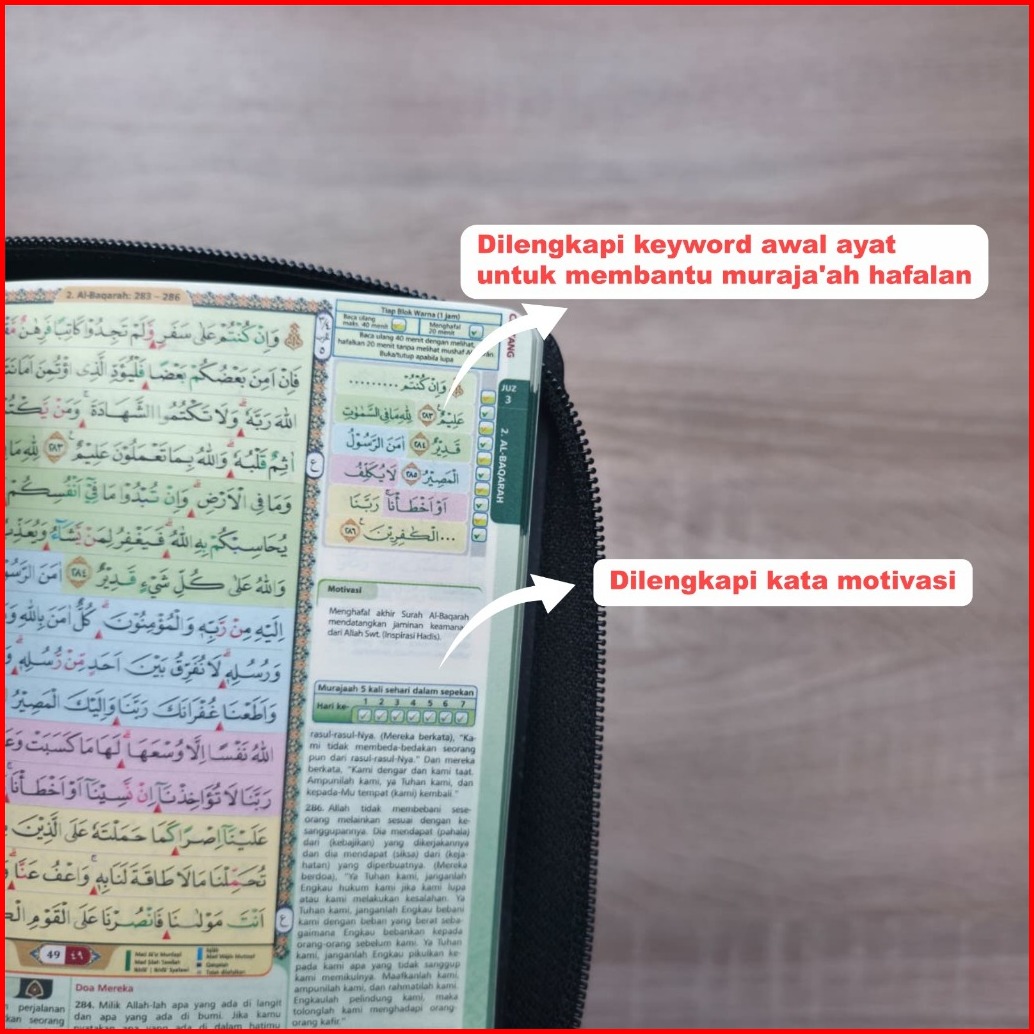 Dilengkapi keyword awal ayat
untuk membantu muraja'ah hafalan
Dilengkapi kata motivasi
2. Al-Baqarah: 283 – 286
وَاِنْ كُنْتُمْ عَلٰى سَفَرٍ وَّلَمْ تَجِدُوْا كَاتِبًا فَرِهٰنٌ
فَاِنْ اَمِنَ بَعْضُكُمْ بَعْضًا فَلْيُؤَدِّ الَّذِى اؤْتُمِنَ اَمَانَتَهٗ
اللّٰهَ رَبَّهٗ ۗ وَلَا تَكْتُمُوا الشَّهَادَةَ ۗ وَمَنْ يَّكْتُمْهَا
اٰثِمٌ قَلْبُهٗ ۗ وَاللّٰهُ بِمَا تَعْمَلُوْنَ عَلِيْمٌ ٢٨٣ لِلّٰهِ مَا
وَمَا فِى الْاَرْضِ ۗ وَاِنْ تُبْدُوْا مَا فِيْٓ اَنْفُسِكُمْ
يُحَاسِبْكُمْ بِهِ اللّٰهُ ۗ فَيَغْفِرُ لِمَنْ يَّشَاۤءُ وَيُعَذِّبُ
وَاللّٰهُ عَلٰى كُلِّ شَيْءٍ قَدِيْرٌ ٢٨٤ اٰمَنَ الرَّسُوْلُ
اِلَيْهِ مِنْ رَّبِّهٖ وَالْمُؤْمِنُوْنَ ۗ كُلٌّ اٰمَنَ بِاللّٰهِ
وَرُسُلِهٖ ۗ لَا نُفَرِّقُ بَيْنَ اَحَدٍ مِّنْ رُّسُلِهٖ ۗ
وَاَطَعْنَا غُفْرَانَكَ رَبَّنَا وَاِلَيْكَ الْمَصِيْرُ
اللّٰهُ نَفْسًا اِلَّا وُسْعَهَا ۗ لَهَا مَا كَسَبَتْ
رَبَّنَا لَا تُؤَاخِذْنَآ اِنْ نَّسِيْنَآ اَوْ اَخْطَأْنَا
عَلَيْنَآ اِصْرًا كَمَا حَمَلْتَهٗ عَلَى الَّذِيْنَ
تُحَمِّلْنَا مَا لَا طَاقَةَ لَنَا بِهٖ ۚ وَاعْفُ عَنَّا
اَنْتَ مَوْلٰىنَا فَانْصُرْنَا عَلَى الْقَوْمِ
49 ٤٩
Tiap Blok Warna (1 Jam)
Baca ulang
maks. 40 menit
Menghafal
20 menit
Baca ulang 40 menit dengan melihat,
hafalkan 20 menit tanpa melihat mushaf
Buka/tutup apabila lupa
وَاِنْ كُنْتُمْ .........
عَلِيْمٌ ٢٨٣ لِلّٰهِ مَا فِى السَّمٰوٰتِ
قَدِيْرٌ ٢٨٤ اٰمَنَ الرَّسُوْلُ
الْمَصِيْرُ ٢٨٥ لَا يُكَلِّفُ
اَوْ اَخْطَأْنَا رَبَّنَا
...الْكٰفِرِيْنَ ٢٨٦
JUZ
3
2. AL-BAQARAH
Motivasi
Menghafal akhir Surah Al-Baqarah
mendatangkan jaminan
dari Allah Swt. (Inspirasi Hadis).
Murajaah 5 kali sehari dalam sepekan
Hari ke- 1 2 3 4 5 6 7
rasul-rasul-Nya. (Mereka berkata), "Ka-
mi tidak membeda-bedakan seorang
pun dari rasul-rasul-Nya." Dan mereka
berkata, "Kami dengar dan kami taat.
Ampunilah kami, ya Tuhan kami, dan
kepada-Mu tempat (kami) kembali."
286. Allah tidak membebani sese-
orang melainkan sesuai dengan ke-
sanggupannya. Dia mendapat (pahala)
dari (kebajikan) yang dikerjakannya
dan dia mendapat (siksa) dari (keja-
hatan) yang diperbuatnya. (Mereka
berdoa), "Ya Tuhan kami, janganlah
Engkau hukum kami jika kami lupa
atau kami melakukan kesalahan. Ya
Tuhan kami, janganlah Engkau bebani
kami dengan beban yang berat seba-
gaimana Engkau bebankan kepada
orang-orang sebelum kami. Ya Tuhan
kami, janganlah Engkau pikulkan ke-
pada kami apa yang tidak sanggup
kami memikulnya. Maafkanlah kami,
ampunilah kami, dan rahmatilah kami.
Engkaulah pelindung kami, maka
tolonglah kami menghadapi orang-
orang kafir."
perjalanan
seorang
Doa Mereka
284. Milik Allah-lah apa yang ada di langit
dan apa yang ada di bumi. Jika kamu
nyatakan apa yang ada di dalam hatimu